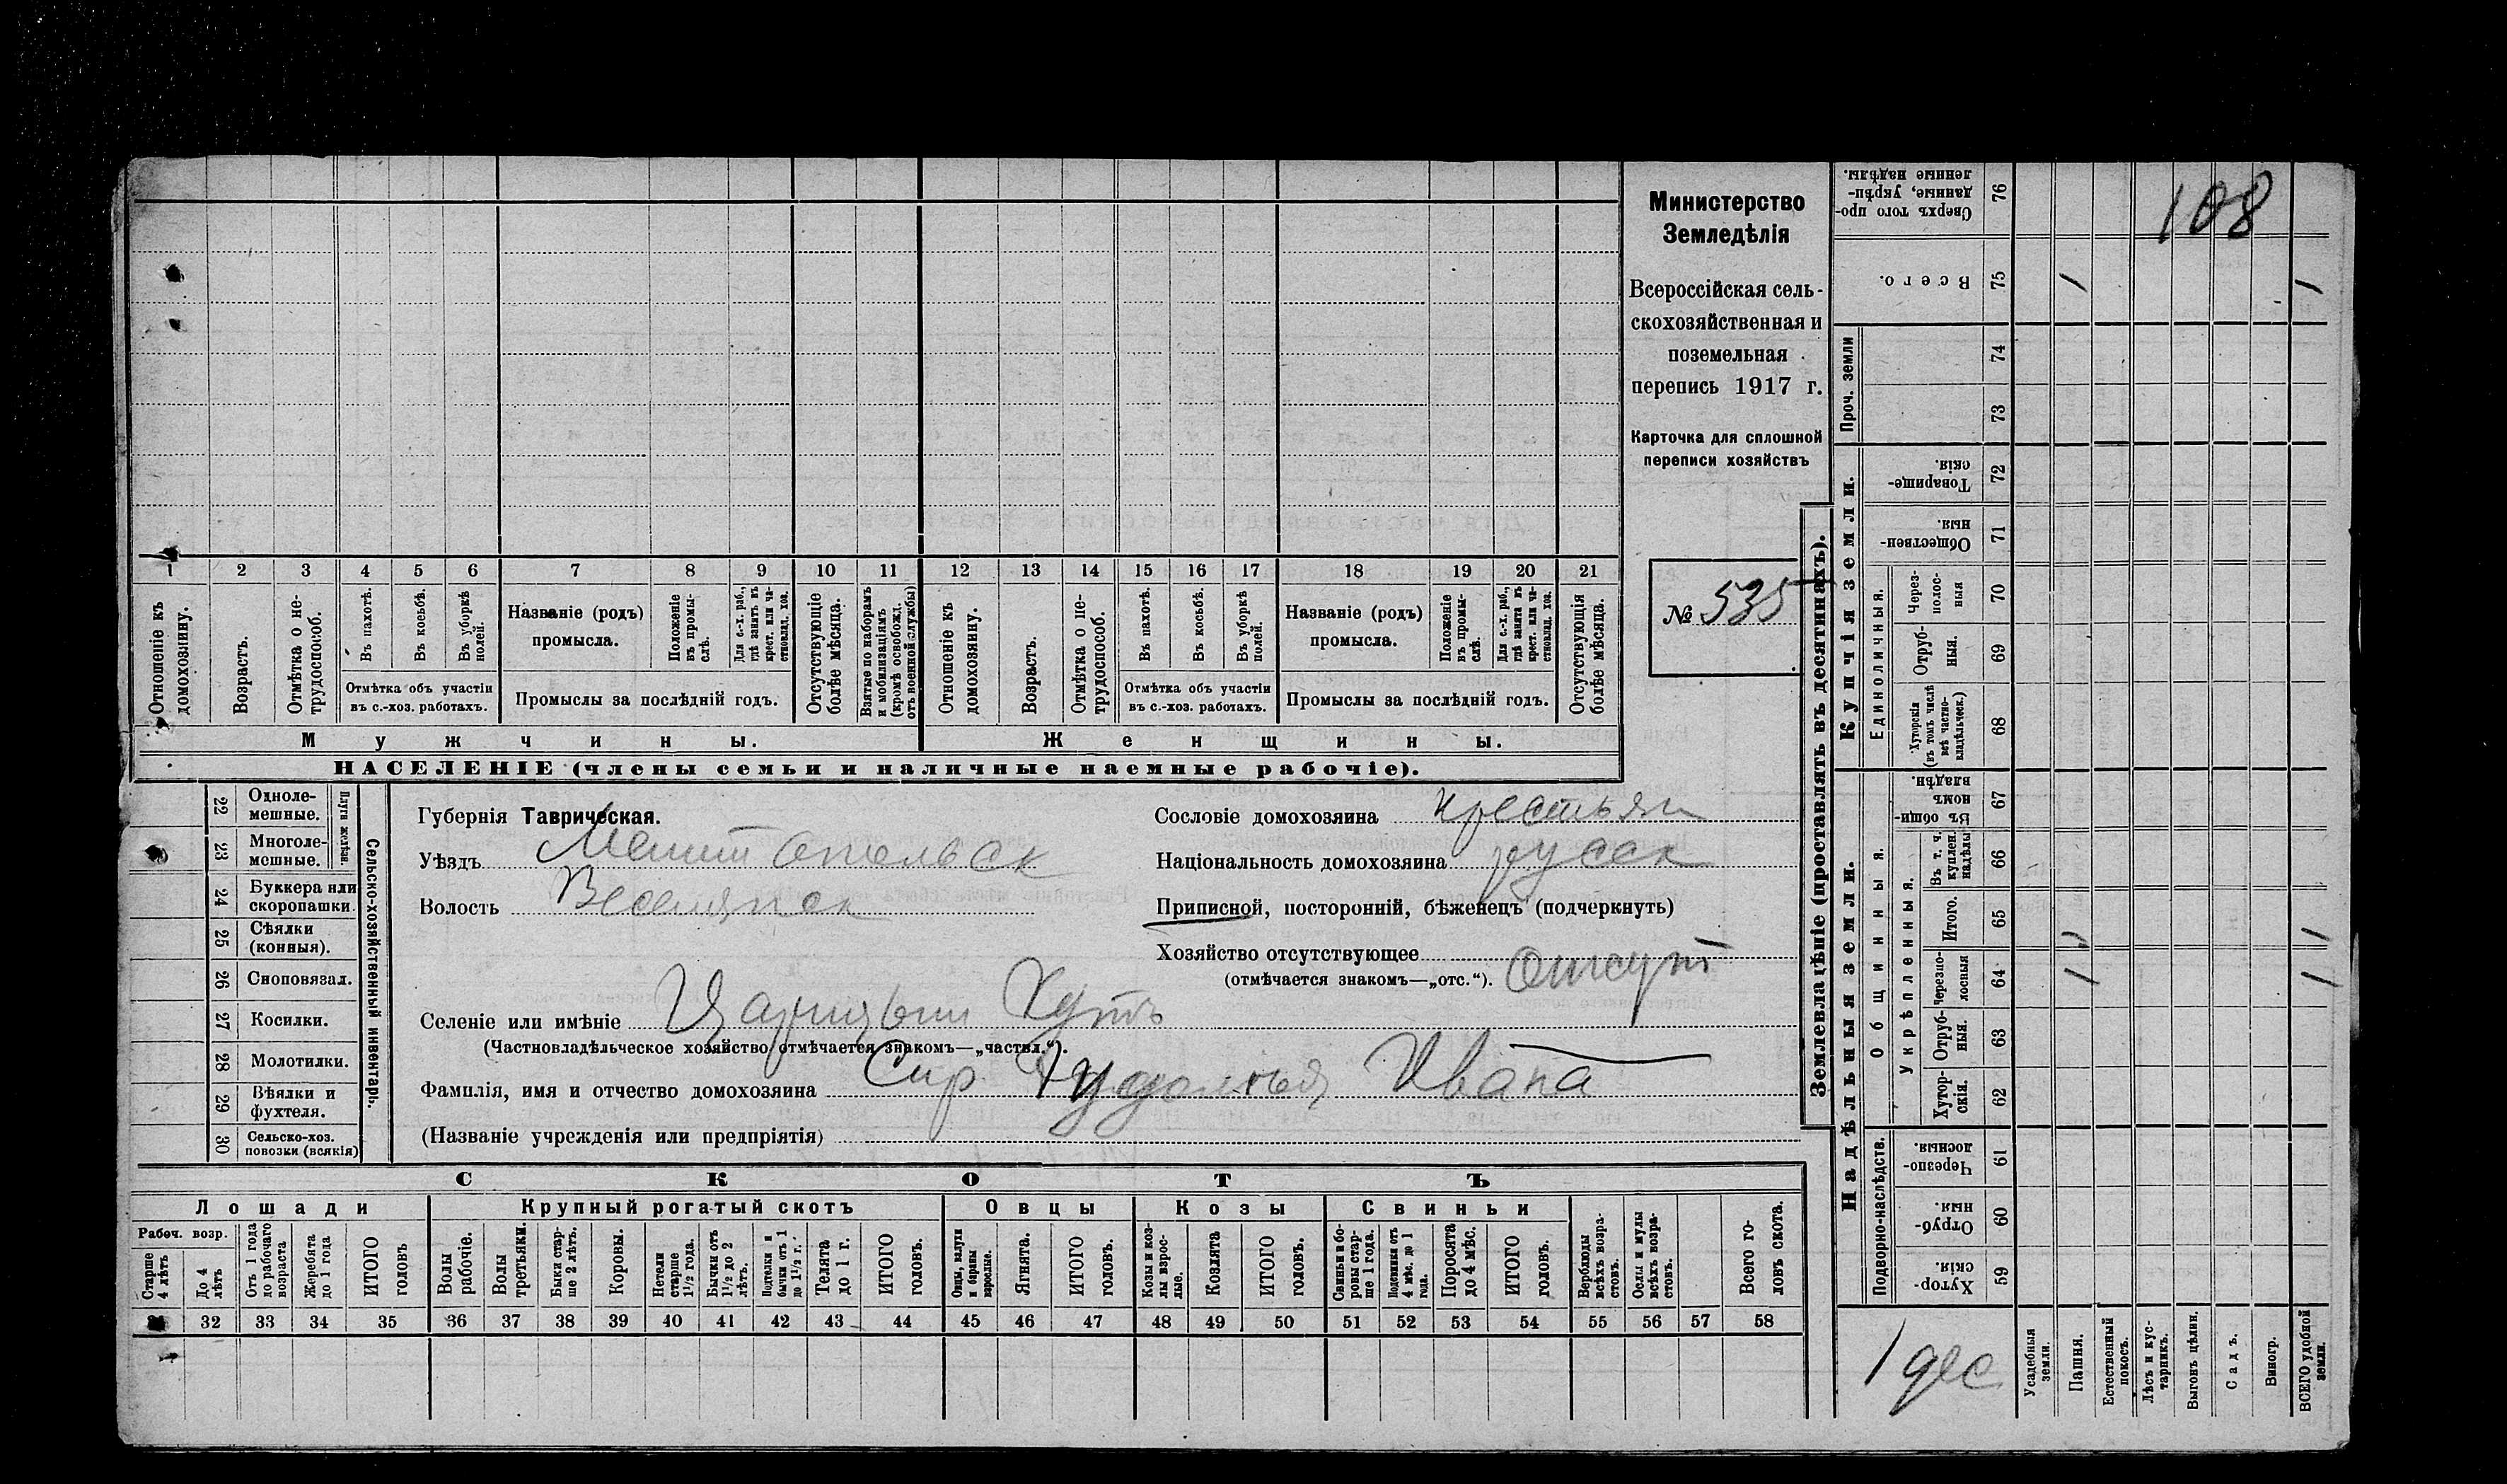 Министерство
Земледѣлія
Всероссійская сель-
скохозяйственная и
поземельная
перепись 1917 г.
Карточка для сплошной
переписи хозяйствъ
№ 535
1 2 3 4 5 6 7 8 9 10 11 12 13 14 15 16 17 18 19 20 21
Отношеніе къ домохозяину.
Возрастъ.
Отмѣтка о не-трудоспособ.
Въ пахотѣ.
Въ косьбѣ.
Въ уборкѣ полей.
Отмѣтка объ участіи
въ с.-хоз. работахъ.
Названіе (родъ)
промысла.
Положеніе въ промы-слѣ.
Для с.-х. раб., гдѣ занятъ въ крест. или ча-стновлад. хоз.
Промыслы за послѣдній годъ.
Отсутствующіе болѣе мѣсяца.
Взятые по наборамъ и мобилизаціямъ (кромѣ освобожд. отъ военной службы)
Отношеніе къ домохозяину.
Возрастъ.
Отмѣтка о не-трудоспособ.
Въ пахотѣ.
Въ косьбѣ.
Въ уборкѣ полей.
Отмѣтка объ участіи
въ с.-хоз. работахъ.
Названіе (родъ)
промысла.
Положеніе въ промы-слѣ.
Для с.-х. раб., гдѣ занята въ крест. или ча-стновлад. хоз.
Промыслы за послѣдній годъ.
Отсутствующія болѣе мѣсяца.
Мужчины. Женщины.
НАСЕЛЕНІЕ (члены семьи и наличные наемные рабочіе).
Сельско-хозяйственный инвентарь.
Плуги желѣзн.
22 Одноле-мешные.
23 Многоле-мешные.
24 Буккера или скоропашки.
25 Сѣялки (конныя).
26 Сноповязал.
27 Косилки.
28 Молотилки.
29 Вѣялки и фухтеля.
30 Сельско-хоз. повозки (всякія)
Губернія Таврическая.
Уѣздъ Мелитопольск
Волость
Селеніе или имѣніе Царицын Кутъ
(Частновладѣльческое хозяйство отмѣчается знакомъ—„частвл.“).
Фамилія, имя и отчество домохозяина Сир. Ивана
(Названіе учрежденія или предпріятія)
Сословіе домохозяина крестьян
Національность домохозяина русск
Приписной, посторонній, бѣженецъ (подчеркнуть)
Хозяйство отсутствующее отсут
(отмѣчается знакомъ—„отс.“).
СКОТЪ
Лошади Крупный рогатый скотъ Овцы Козы Свиньи
Рабоч. возр.
Старше 4 лѣтъ
До 4 лѣтъ
Отъ 1 года до рабочаго возраста
Жеребята до 1 года
ИТОГО головъ
Волы рабочіе.
Волы третьяки.
Быки стар-ше 2 лѣтъ.
Коровы.
Нетели старше 1½ года.
Бычки отъ 1½ до 2 лѣтъ.
Подтелки и бычки отъ 1 до 1½ г.
Телята до 1 г.
ИТОГО головъ.
Овцы, валухи и бараны взрослые.
Ягнята.
ИТОГО головъ.
Козы и коз-лы взрос-лые.
Козлята
ИТОГО головъ.
Свиньи и бо-ровы стар-ше 1 года.
Подсвинки отъ 4 мѣс. до 1 года.
Поросята до 4 мѣс.
ИТОГО головъ.
Верблюды всѣхъ возра-стовъ.
Ослы и мулы всѣхъ возра-стовъ.
Всего го-ловъ скота.
32 33 34 35 36 37 38 39 40 41 42 43 44 45 46 47 48 49 50 51 52 53 54 55 56 57 58
Землевладѣніе (проставлять въ десятинахъ).
108
76 Сверхъ того про-данные, укрѣп-ленные надѣлы.
75 Всего.
Проч. земли
74
73
Купчія земли.
72 Товарище-скія.
71 Обществен-ныя.
Единоличныя.
70 Через-полос-ныя
69 Отруб-ныя.
68 Хуторскія (въ томъ числѣ всѣ частно-владѣльческ.)
Надѣльныя земли.
Общинныя.
67 Въ общи-номъ владѣн.
Укрѣпленныя.
66 Въ т. ч. куплен. надѣлы
65 Итого.
64 Черезпо-лосныя
63 Отруб-ныя.
62 Хутор-скія.
Подворно-наслѣдств.
61 Черезпо-лосныя
60 Отруб-ныя.
59 Хутор-скія.
1 дес
Усадебныя земли.
Пашня.
Естественный покосъ.
Лѣсъ и кус-тарникъ.
Выгонъ цѣлин.
Садъ.
Виногр.
ВСЕГО удобной земли.